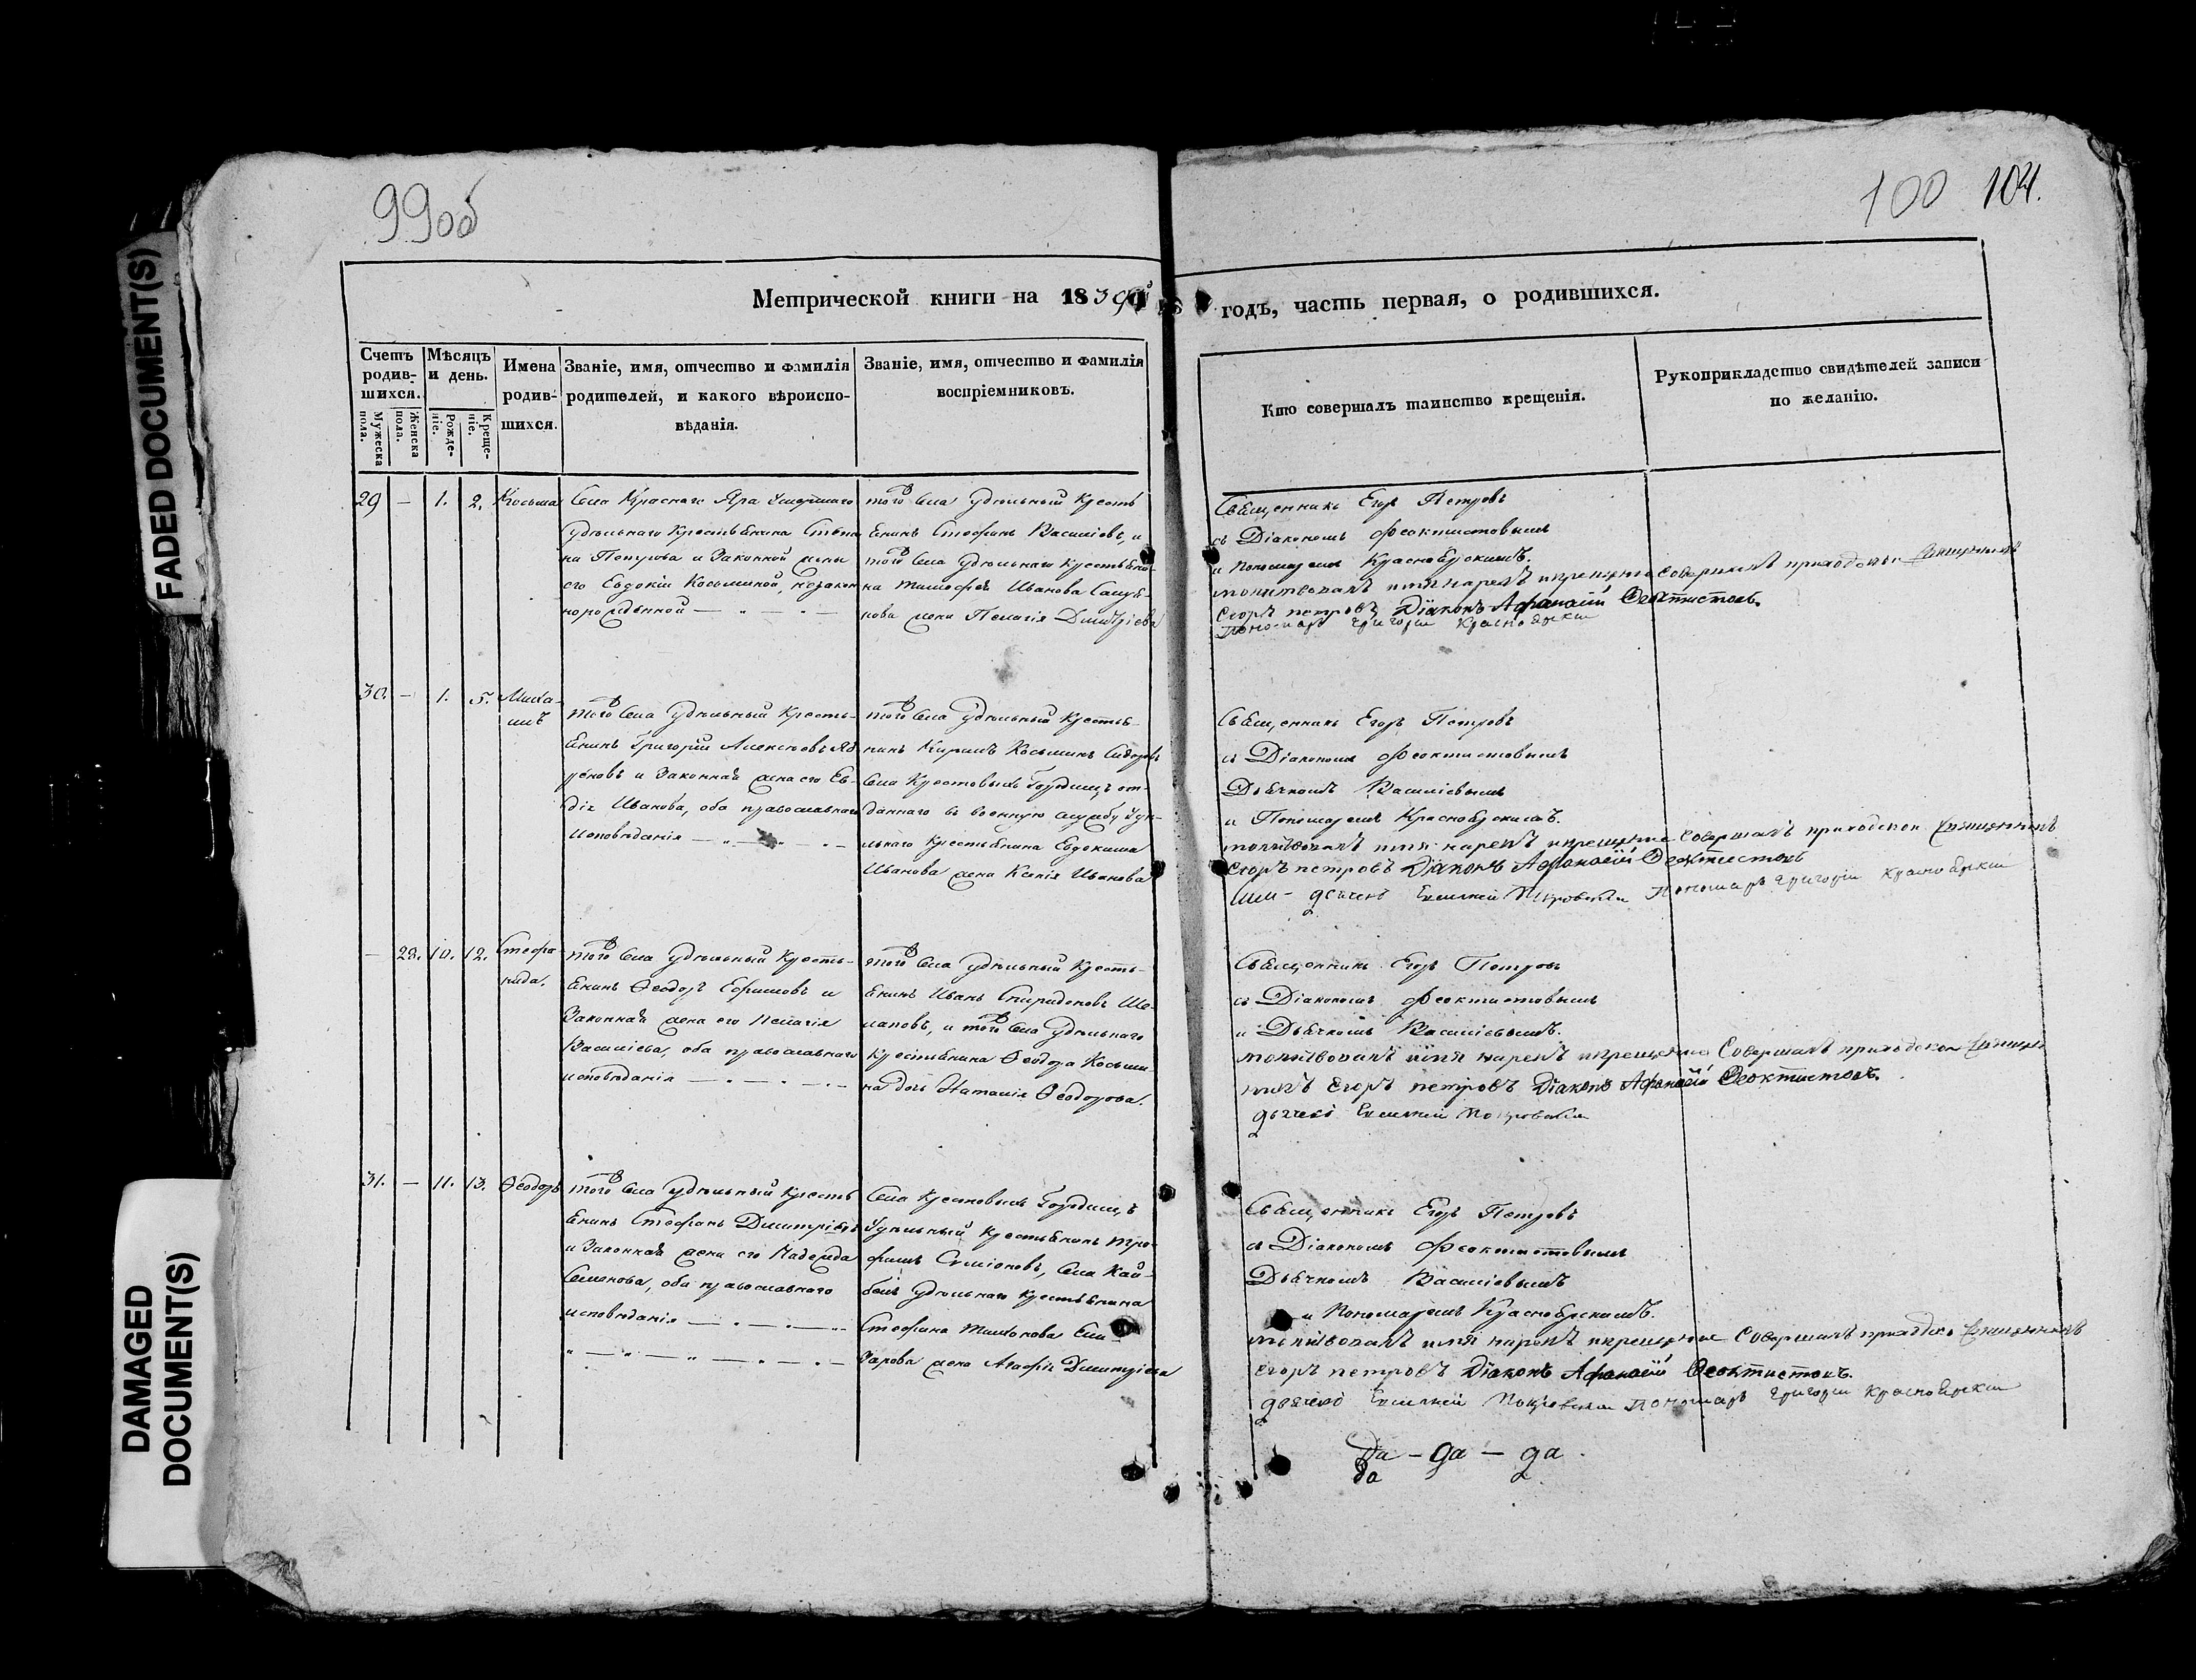 FADED DOCUMENT(S)
DAMAGED
DOCUMENT(S)
99об
100 104.
Метрической книги на 1839й годъ, часть первая, о родившихся.
Счетъ родив-шихся.
Мужеска пола.
Женска пола.
Мѣсяцъ и день.
Рожде-ніе.
Креще-ніе.
Имена родив-шихся.
Званіе, имя, отчество и фамилія родителей, и какого вѣроиспо-вѣданія.
Званіе, имя, отчество и фамилія воспріемниковъ.
Кто совершалъ таинство крещенія.
Рукоприкладство свидѣтелей записи по желанію.
29 — 1. 2. Косьма
Села Краснаго Яра умершаго
удѣльнаго крестьянина Стефа
на Петрова и законной жены
его Евдокіи Косьминой, незакон
норожденной
того села удѣльный кресть
янинъ Стефанъ Василіевъ, и
того села удѣльнаго крестьяни-
на Тимофея Иванова
жена Пелагія Дмитріева
Священникъ Егоръ Петровъ
съ Діакономъ Феоктистовымъ
и Пономаремъ Красноярскимъ.
молитвовалъ имя нарекъ и крещение совершалъ приходской священникъ
Егоръ Петровъ Діаконъ Афанасій Феоктистовъ.
Пономарь Григорій Красноярскій
30. — 1. 5. Миха-
илъ
того села удѣльный кресть-
янинъ Григорій Алексѣевъ
и законная жена его Ев-
дія Иванова, оба православнаго
исповѣданія
того села удѣльный крестья-
нинъ Кирилъ Косьминъ Сидоровъ
села Крестовыхъ Городищъ от-
даннаго въ военную службу удѣ-
льнаго крестьянина Евдокима
Иванова жена Ксенія Иванова
Священникъ Егоръ Петровъ
съ Діакономъ Феоктистовымъ
Дьячкомъ Василіевымъ
и Пономаремъ Красноярскимъ.
молитвовалъ имя нарекъ и крещение совершалъ приходской священникъ
Егоръ Петровъ Діаконъ Афанасій Феоктистовъ
дьячекъ Василий Покровский Пономарь Григорій Красноярскій
— 22. 10. 12. Стефа
нида.
того села удѣльный кресть-
янинъ Ѳеодоръ Ефимовъ и
законная жена его Пелагія
Василіева, оба православнаго
исповѣданія
того села удѣльный кресть-
янинъ Иванъ Спиридоновъ Ша-
лановъ, и того села удѣльнаго
крестьянина Ѳеодора Косьми
на дочь Наталія Ѳеодорова.
Священникъ Егоръ Петровъ
съ Діакономъ Феоктистовымъ
и Дьячкомъ Василіевымъ.
молитвовалъ имя нарекъ и крещение совершалъ приходской священ
никъ Егоръ Петровъ Діаконъ Афанасій Феоктистовъ.
дьячекъ Василий Покровский
31. — 11. 13. Ѳеодоръ
того села удѣльный кресть
янинъ Стефанъ Дмитріевъ
и законная жена его Надежда
Семенова, оба православнаго
исповѣданія
Села Крестовыхъ Городищъ
удѣльный крестьянинъ Тро-
фимъ Симіоновъ, села Кай-
белъ удѣльнаго крестьянина
Стефана Тихонова Ела-
зарова жена Агафія Дмитріева
Священникъ Егоръ Петровъ
съ Діакономъ Феоктистовымъ
Дьячкомъ Василіевымъ
и Пономаремъ Красноярскимъ.
молитвовалъ имя нарекъ и крещение совершалъ приходской священникъ
Егоръ Петровъ Діаконъ Афанасій Феоктистовъ.
дьячекъ Василий Покровский Пономарь Григорій Красноярскій